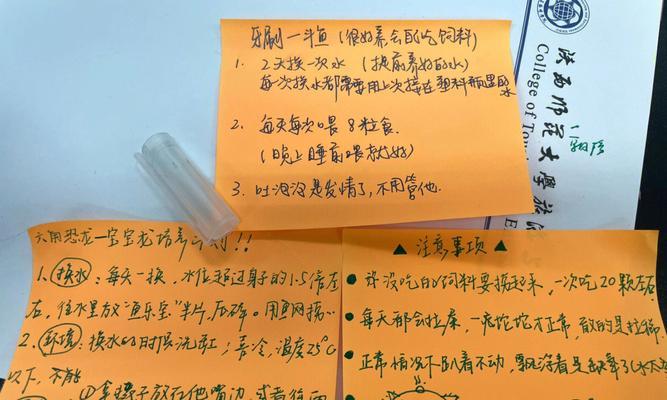 牙刷一斗鱼（很好养会自己吃饲料）
1. 2天换一次水（提前养好的水）
每次换水都需要用上次接在塑料瓶里的水
2. 每天每次喂8粒食.
（晚上睡前喂就好）
3. 吐泡泡是发情了,不用管他.
陕西师范大学旅
College of Tou
六角恐龙一宝宝龙培养计划!!
1. 换水: 每天一换, 水位超过身子的1.5倍左
右, 往水里放"鱼乐宝"半片, 压碎。用鱼网捞
2. 环境: 换水的时候洗缸; 喜冷, 温度25℃
以下,
▲ 注意事项 ▲
• 没吃的饲料要捞起来, 一次吃20颗左右
• 每天都会拉屎, 一坨坨才正常, 散的是拉稀.
• 正常情况下趴着不动, 飘浮着是